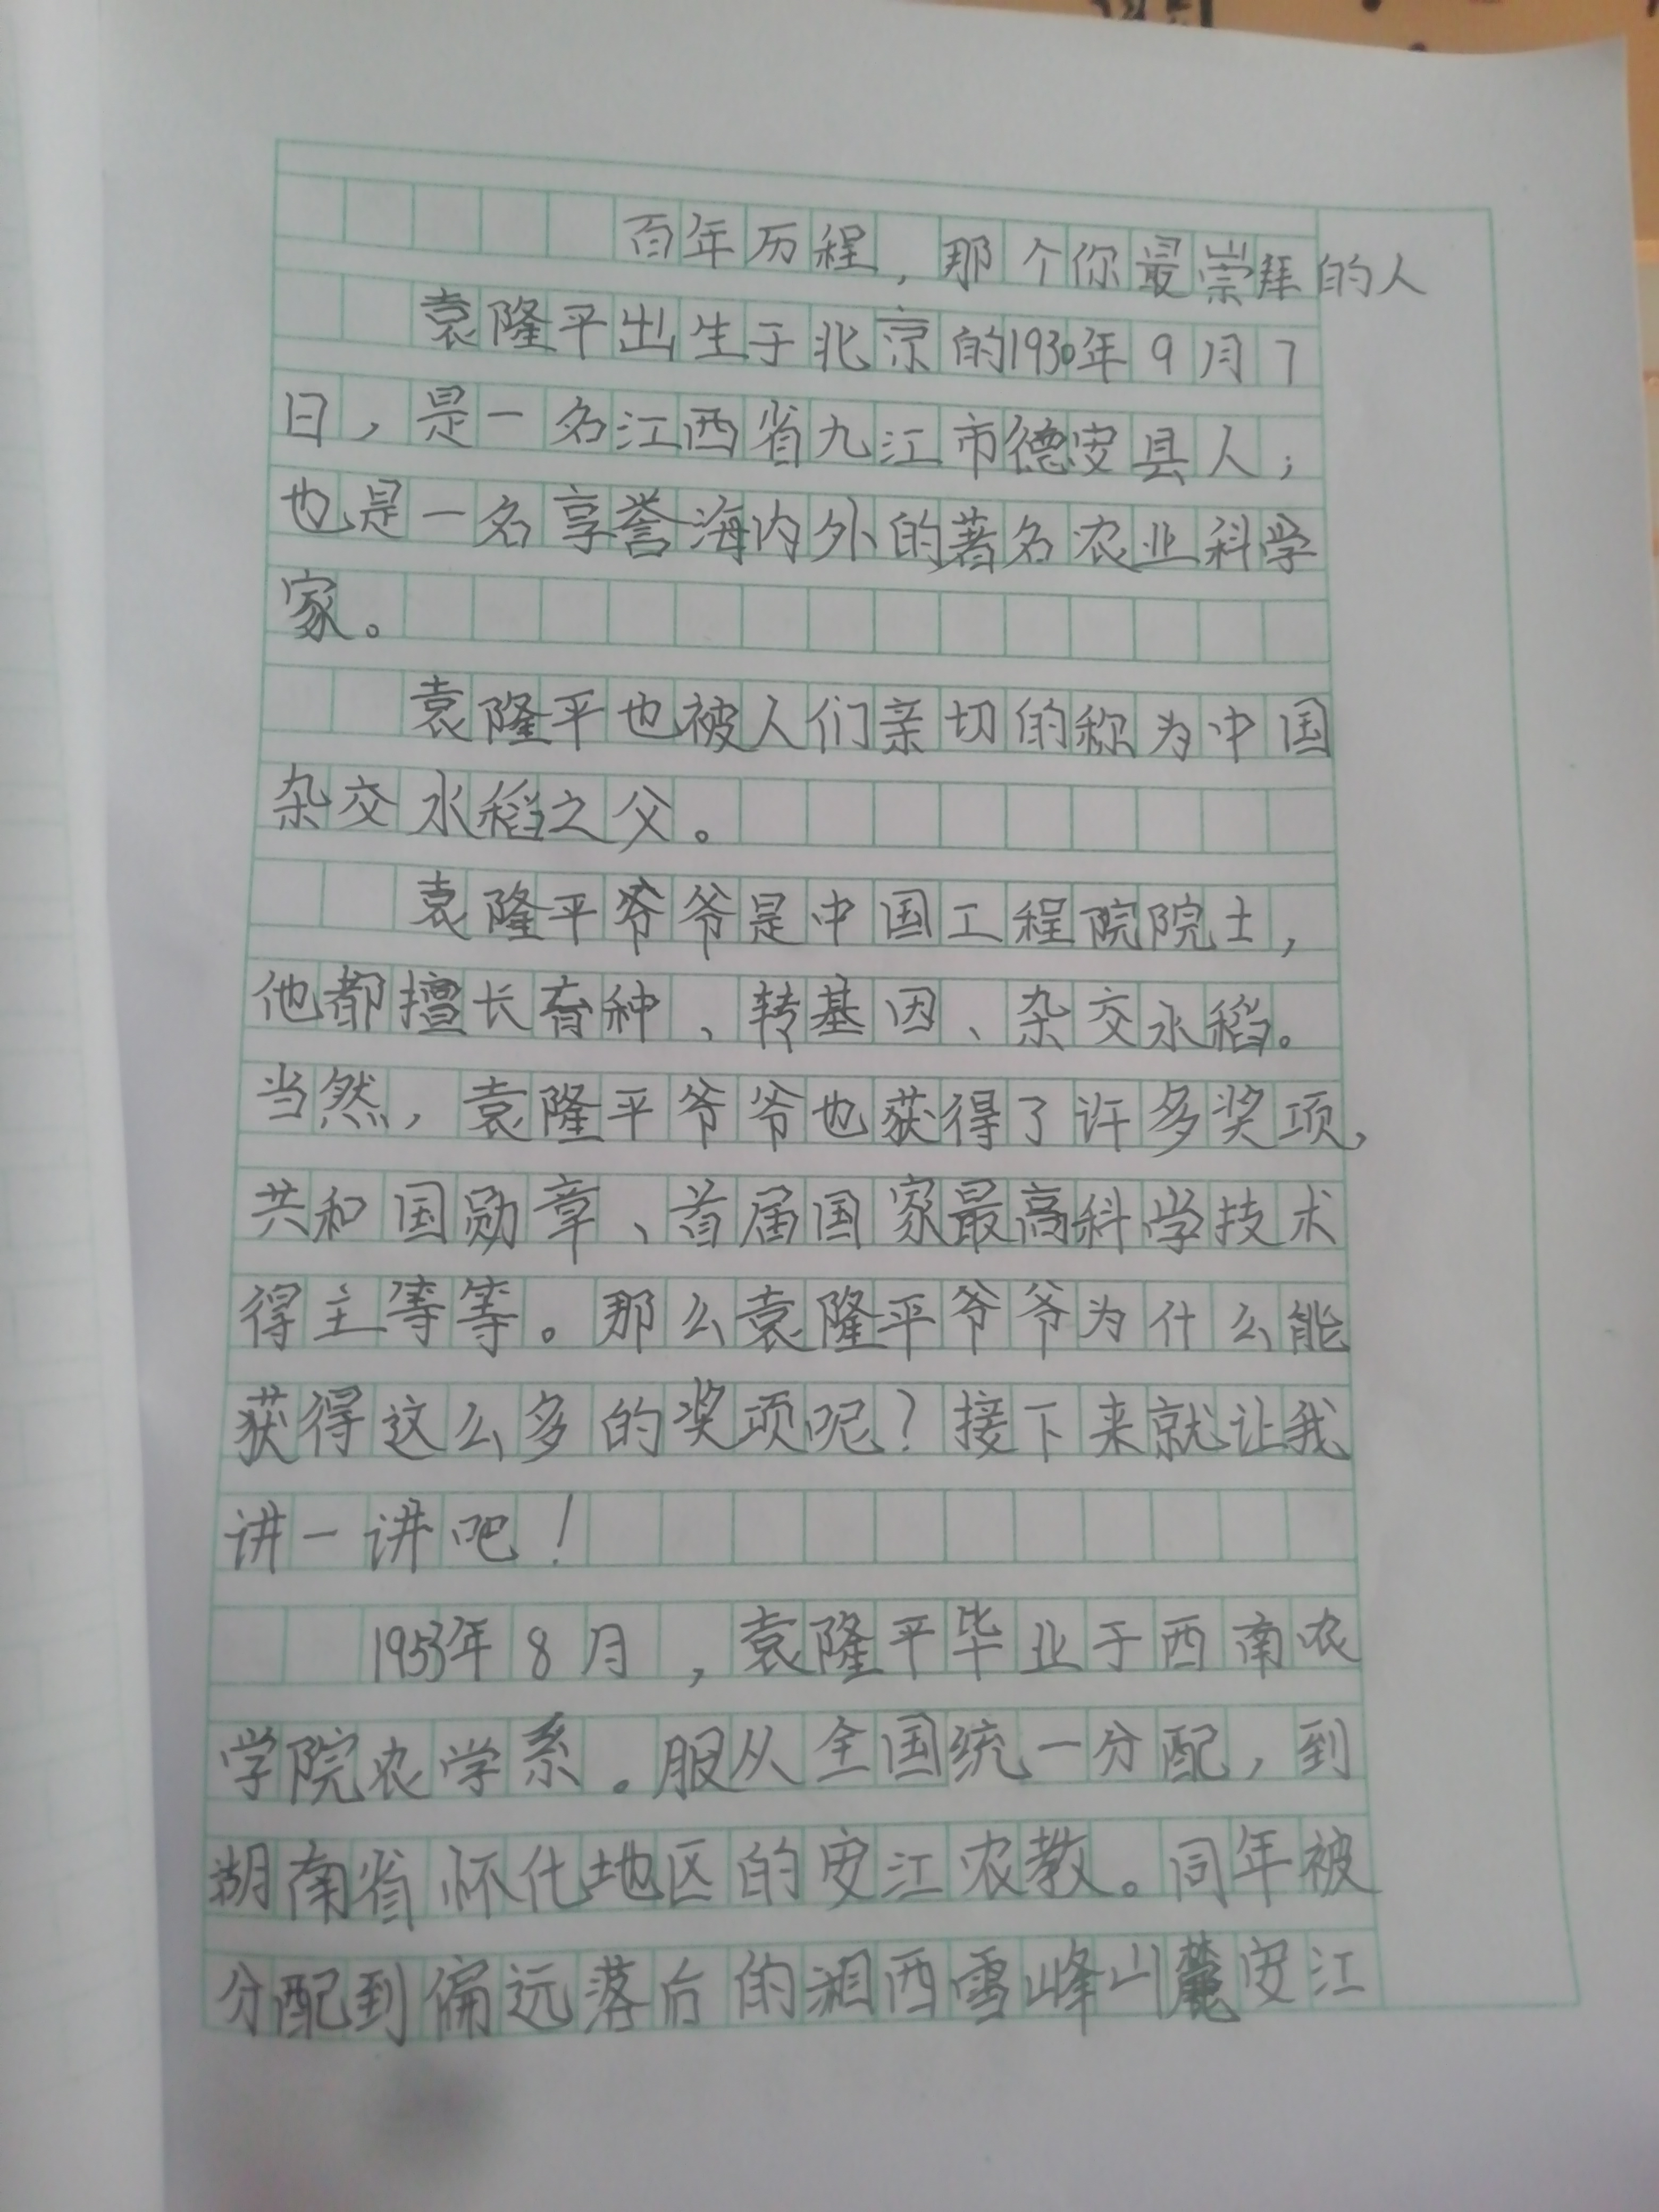 百年历程，那个你最崇拜的人
袁隆平出生于北京的1930年9月7
日，是一名江西省九江市德安县人；
也是一名享誉海内外的著名农业科学
家。
袁隆平也被人们亲切的称为中国
杂交水稻之父。
袁隆平爷爷是中国工程院院士，
他都擅长育种、转基因、杂交水稻。
当然，袁隆平爷爷也获得了许多奖项，
共和国勋章、首届国家最高科学技术
得主等等。那么袁隆平爷爷为什么能
获得这么多的奖项呢？接下来就让我
讲一讲吧！
1953年8月，袁隆平毕业于西南农
学院农学系。服从全国统一分配，到
湖南省怀化地区的安江农教。同年被
分配到偏远落后的湘西雪峰山麓安江